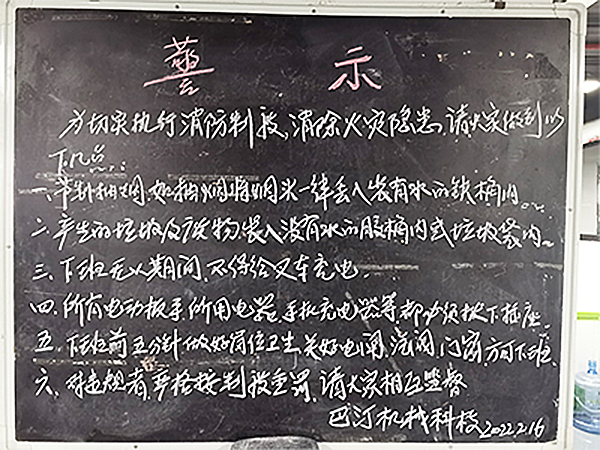 警 示
为切实执行消防制度,消除火灾隐患,请大家做到以
下几点
一、严制抽烟,如抽烟将烟头一律丢入装有水的铁桶内。
二、产生的垃圾及废物装入没有水的胶桶内或垃圾袋内。
三、下班无人期间,不得给叉车充电.
四、所有电动扳手所用电器,手机充电器等都必须拔下插座.
五、下班前五分钟做好岗位卫生关好电闸,气阀,门窗,方可下班.
六、对违规者,严格按制度金罚,请大家相互监督
巴江机械科技2022.2.16